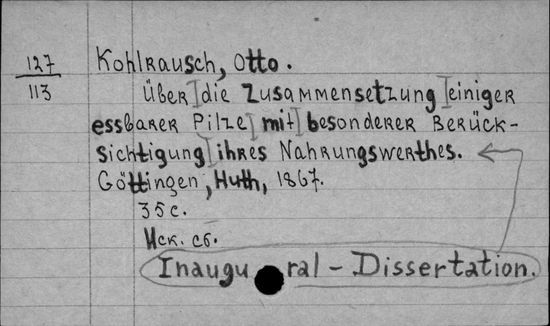 127
113
Kohlrausch, Otto.
Über die Zusammensetzung einiger
essbarer Pilze mit besonderer Berück-
sichtigung ihres Nahrungswerthes.
Göttingen, Huth, 1867.
35 c.
Иск. сб.
Inaugural - Dissertation.